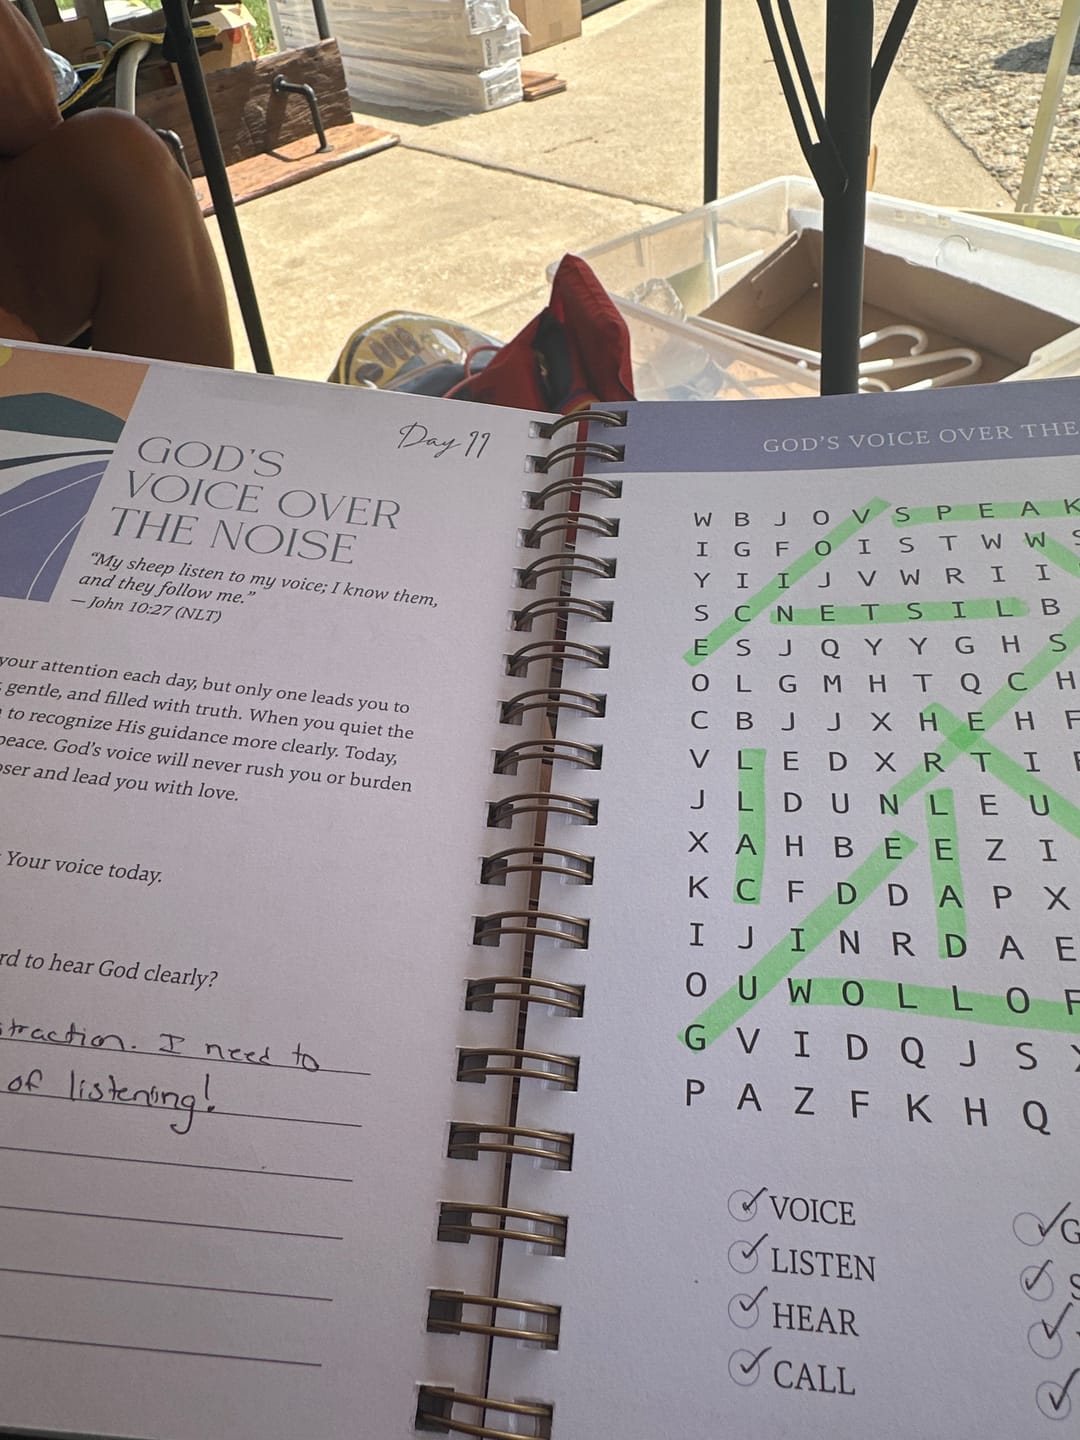 Day 11
GOD'S
VOICE OVER
THE NOISE
“My sheep listen to my voice; I know them,
and they follow me.”
— John 10:27 (NLT)
your attention each day, but only one leads you to
gentle, and filled with truth. When you quiet the
to recognize His guidance more clearly. Today,
peace. God's voice will never rush you or burden
and lead you with love.
Your voice today.
to hear God clearly?
I need to
of listening!
GOD'S VOICE OVER THE
W B J O V S P E A K
I G F O I S T W W S
Y I I J V W R I I
S C N E T S I L B
E S J Q Y Y G H S
O L G M H T Q C H
C B J J X H E H F
V L E D X R T I
J L D U N L E U
X A H B E E Z I
K C F D D A P X
I J I N R D A E
O U W O L L O F
G V I D Q J S
P A Z F K H Q
VOICE
LISTEN
HEAR
CALL
G
S